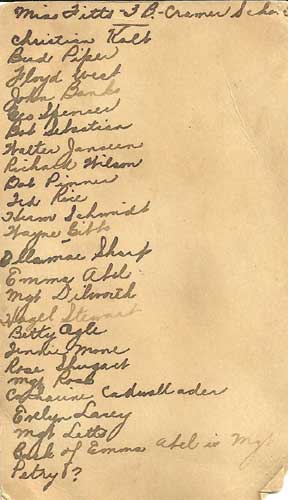 Miss Fitts - 7B - Cramer School
Christian Kalb
Bud Piper
Floyd West
John Banks
Geo Spencer
Bob Sebastian
Walter Janssen
Richard Wilson
Bob Pinner
Ted Rice
Herm Schmidt
Wayne Gibbs
Ellamae Sharp
Emma Abel
Mgt Dilworth
Hazel Stewart
Betty Ogle
Jennie Mone
Rose Shugart
Mgt Rose
Catharine Cadwallader
Evelyn Lacey
Mgt Letts
Back of Emma Abel is Mgt
Petry?